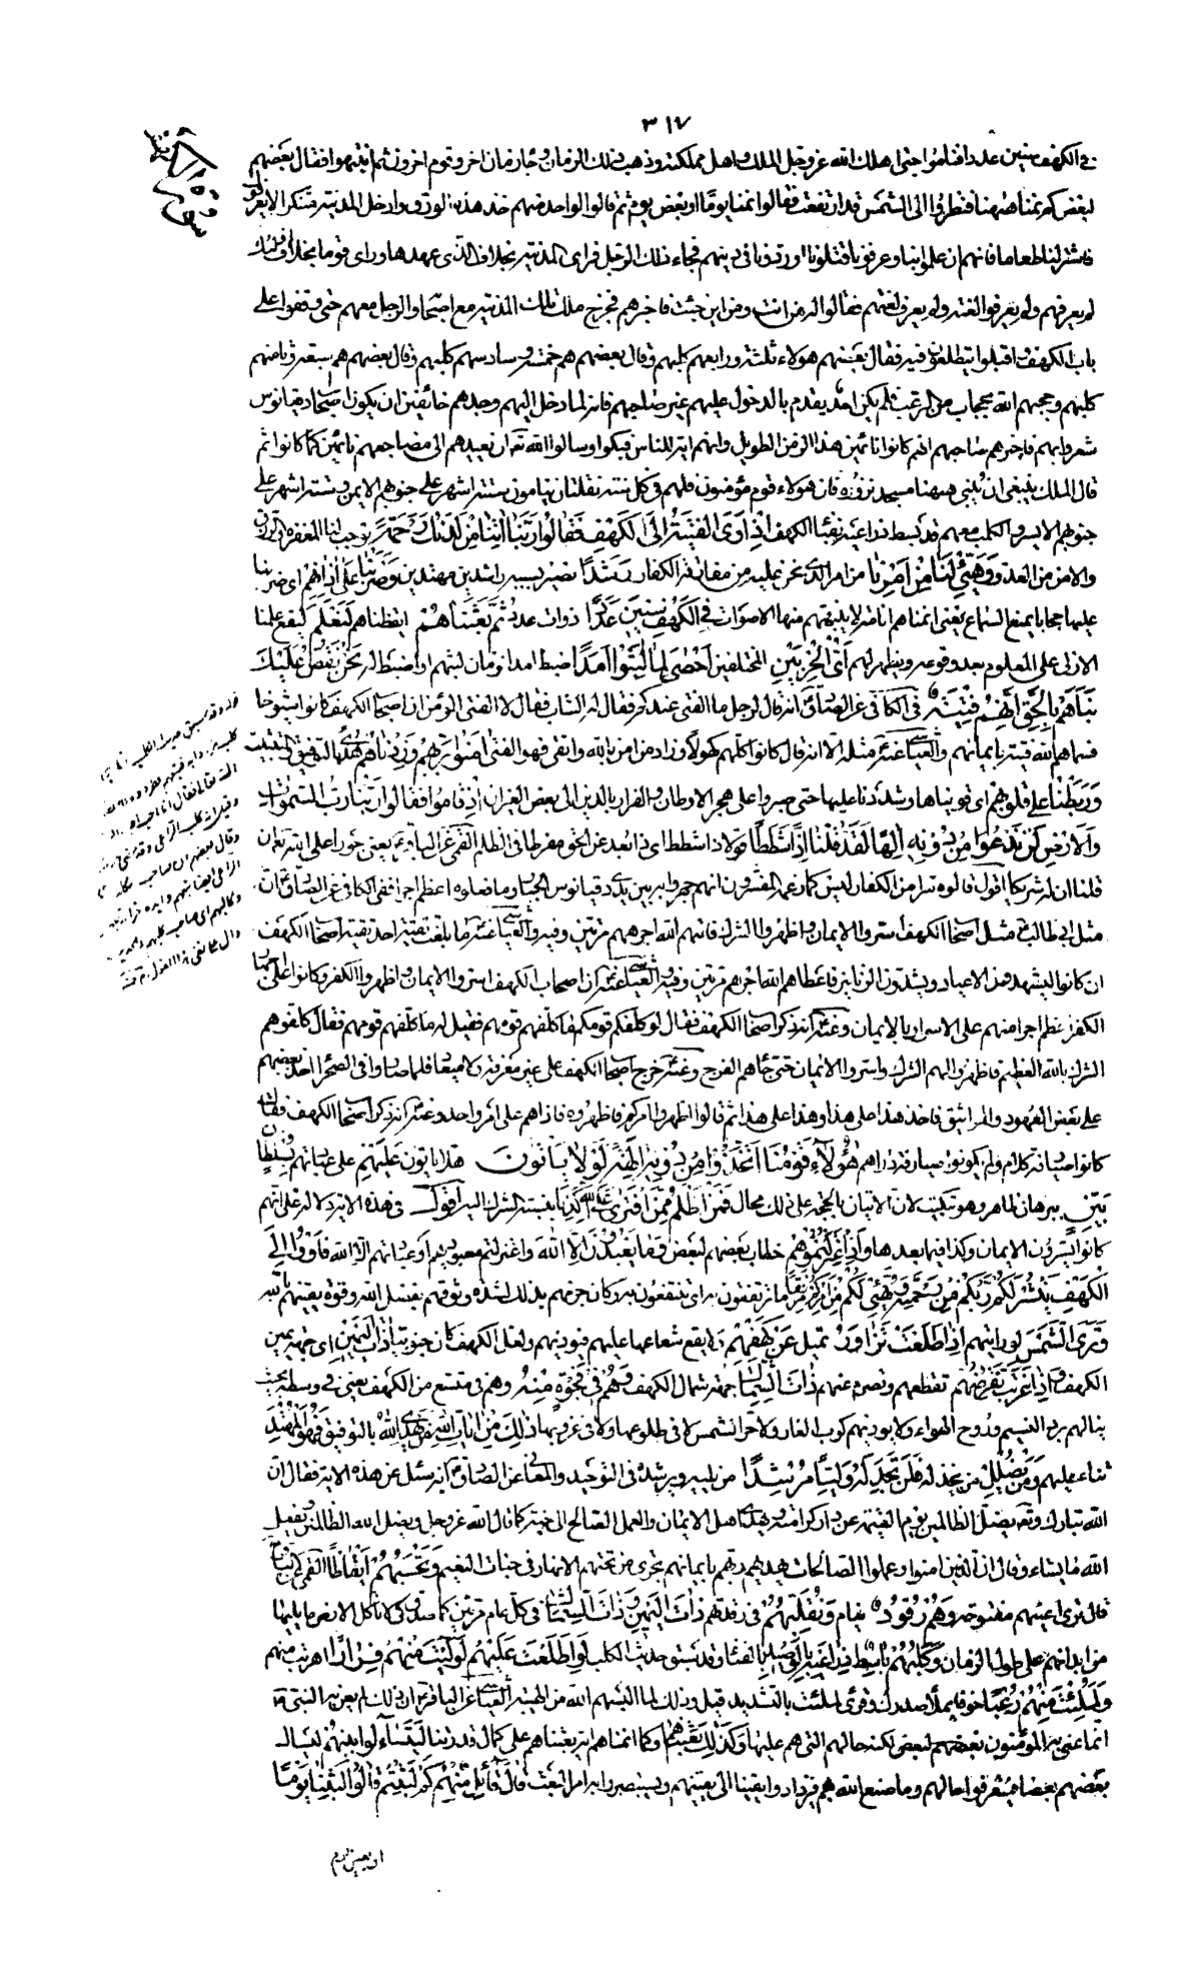 ٣١٧
في الكهف سنين عددا فناموا حتى اهلك الله عز وجل الملك واهل مملكته وذهب ذلك الزمان وجاء زمان اخر وقوم اخرون ثم انتبهوا فقال بعضهم
لبعض كم نمنا هيهنا فنظروا الى الشمس قد ارتفعت فقالوا نمنا يوما او بعض يوم ثم قالوا لواحد منهم خذ هذه الورق وادخل المدينة متنكرا لا يعرفوك
فاشتر لنا طعاما فانهم ان علموا بنا وعرفونا قتلونا او ردونا في دينهم فجاء ذلك الرجل فراى المدينة بخلاف الذي عهدها وراى قوما بخلاف اولئك
لم يعرفهم ولم يعرفوا لغته ولم يعرف لغتهم فقالوا له من انت ومن اين جئت فاخبرهم فخرج ملك تلك المدينة مع اصحابه والرجل معهم حتى وقفوا على
باب الكهف اقبلوا يتطلعون فيه فقال بعضهم هولاء ثلثة ورابعهم كلبهم وقال بعضهم هم خمسة وسادسهم كلبهم وقال بعضهم هم سبعة وثامنهم
كلبهم وحجبهم الله بحجاب من الرعب فلم يكن احد يقدم بالدخول عليهم غير صاحبهم فانه لما دخل اليهم وجدهم خائفين ان يكون اصحاب دقيانوس
شعروا بهم فاخبرهم صاحبهم انهم كانوا نائمين هذا الزمن الطويل وانهم اية للناس فبكوا وسالوا الله تعالى ان يعيدهم الى مضاجعهم نائمين كما كانوا ثم
قال الملك ينبغي ان نبني هيهنا مسجدا نزوره فان هولاء قوم مؤمنون فلهم في كل سنة نقلتان ينامون ستة اشهر على جنوبهم الايمن وستة اشهر على
جنوبهم الايسر والكلب معهم قد بسط ذراعيه بفناء الكهف اذ اوى الفتية الى الكهف فقالوا ربنا اتنا من لدنك رحمة توجب لنا المغفرة والرزق
والامن من العدو وهيئ لنا من امرنا من امر الذي نحن عليه من مفارقة الكفار رشدا نصير بسببه راشدين مهتدين فضربنا على اذانهم اي ضربنا
عليها حجابا يمنع السماع يعني انمناهم انامة لا ينبههم منها الاصوات في الكهف سنين عددا ذوات عدد ثم بعثناهم ايقظناهم لنعلم ليقع علمنا
الازلي على المعلوم بعد وقوعه ويظهر لهم اي الحزبين المختلفين احصى لما لبثوا امدا ضبط امدا لزمان لبثهم او اضبط له نحن نقص عليك
نباهم بالحق انهم فتية في الكافي عن الصادق انه قال لرجل ما الفتى عندكم فقال له الشاب فقال لا الفتى المؤمن ان اصحاب الكهف كانوا شيوخا
فسماهم الله فتية بايمانهم والعياشي عنه مثله الا انه قال كانوا كلهم كهولا وزاد من امن بالله واتقى فهو الفتى امنوا بربهم وزدناهم هدى بالتوفيق والتثبيت
وربطنا على قلوبهم اي قويناها وشددنا عليها حتى صبروا على هجر الاوطان والفرار بالدين الى بعض الغيران اذ قاموا فقالوا ربنا رب السموات
والارض لن ندعوا من دونه الها لقد قلنا اذا شططا قولا ذا شطط اي ذا بعد عن الحق مفرطا في الظلم القمي عن الباقر يعني جورا على الله تعالى ان
قلنا ان له شريكا اقول قالوه سرا من الكفار ليس كما زعمه المفسرون انهم جهروا به بين يدي دقيانوس الجبار وما فعلوه اعظم اجرا ففي الكافي عن الصادق ان
مثل ابي طالب مثل اصحاب الكهف اسروا الايمان واظهروا الشرك فاتيهم الله اجرهم مرتين وفيه والعياشي عنه ما بلغت تقية احد تقية اصحاب الكهف
ان كانوا ليشهدون الاعياد ويشدون الزنانير فاعطاهم الله اجرهم مرتين وفيه والعياشي عنه ان اصحاب الكهف اسروا الايمان واظهروا الكفر وكانوا على اجهار
الكفر اعظم اجرا منهم على الاسرار بالايمان وعنه انه ذكر اصحاب الكهف فقال لو كلفكم قومكم ما كلفهم قومهم فقيل له ما كلفهم قومهم فقال كلفوهم
الشرك بالله العظيم فاظهروا لهم الشرك واسروا الايمان حتى جاءهم الفرج وعنه خرج اصحاب الكهف على غير معرفة ولا ميعاد فلما صاروا في الصحراء اخذ بعضهم
على بعض العهود والمواثيق فاخذ هذا على هذا وهذا على هذا ثم قالوا اظهروا امركم فاظهروه فاذا هم على امر واحد وعنه انه ذكر اصحاب الكهف فقال
كانوا صيارفة كلام ولم يكونوا صيارفة دراهم هؤلاء قومنا اتخذوا من دونه الهة لولا ياتون هلا ياتون عليهم على عبادتهم بسلطان
بين ببرهان ظاهر وهو تبكيت لان الاتيان بالحجة على ذلك محال فمن اظلم ممن افترى على الله كذبا بنسبة الشريك اليه اقول في هذه الاية دلالة على انهم
كانوا يسرون الايمان وكذا فيما بعدها واذ اعتزلتموهم خطاب بعضهم لبعض وما يعبدون الا الله واعتزلتم معبوديهم او عبادتهم الا الله فاووا الى
الكهف ينشر لكم ربكم من رحمته ويهيئ لكم من امركم مرفقا ما ترتفقون به اي تنتفعون به وكان جزمهم بذلك لشدة وثوقهم بفضل الله وقوة يقينهم بالله
وترى الشمس لو رايتهم اذا طلعت تزاور تميل عن كهفهم ولا يقع شعاعها عليهم فيؤذيهم ولعل الكهف كان جنوبيا ذات اليمين اي جهة يمين
الكهف واذا غربت تقرضهم تقطعهم وتصرم عنهم ذات الشمال جهة شمال الكهف وهم في فجوة منه وهم في متسع من الكهف يعني في وسطه بحيث
ينالهم برد النسيم وروح الهواء ولا يؤذيهم كرب الغار ولا حر الشمس لا في طلوعها ولا في غروبها ذلك من ايات الله من يهدي الله بالتوفيق فهو المهتد
ثناء عليهم ومن يضلل من يخذله فلن تجد له وليا مرشدا من يليه ويرشده في التوحيد والمعاني عن الصادق انه سئل عن هذه الاية فقال ان
الله تبارك وتعالى يضل الظالمين يوم القيمة عن دار كرامته ويهدي اهل الايمان والعمل الصالح الى جنته كما قال الله عز وجل ويضل الله الظالمين ويفعل
الله ما يشاء وقال ان الذين امنوا وعملوا الصالحات يهديهم ربهم بايمانهم تجري من تحتهم الانهار في جنات النعيم وتحسبهم ايقاظا القمي عن الباقر
قال ترى اعينهم مفتوحة وهم رقود نيام ونقلبهم في رقدتهم ذات اليمين وذات الشمال في كل عام مرتين كما مر وكي لا تاكل الارض ما يليها
من ابدانهم على طول الزمان وكلبهم باسط ذراعيه بالوصيد بالفناء وقد سبق حديث الكلب لو اطلعت عليهم لوليت منهم فرارا لهربت منهم
ولملئت منهم رعبا خوفا يملأ صدرك وقرئ لملئت بالتشديد قيل وذلك لما البسهم الله من الهيبة العياشي عن الباقر ان ذلك لم يعن به النبي ص
انما عني به المؤمنون بعضهم لبعض لكنه حالهم التي هم عليها وكذلك بعثناهم وكما انمناهم اية بعثناهم على كمال قدرتنا ليتساءلوا بينهم ليسال
بعضهم بعضا فيتعرفوا حالهم وما صنع الله بهم فيزدادوا يقينا الى يقينهم ويستبصروا به امر البعث قال قائل منهم كم لبثتم قالوا لبثنا يوما
او بعض يوم